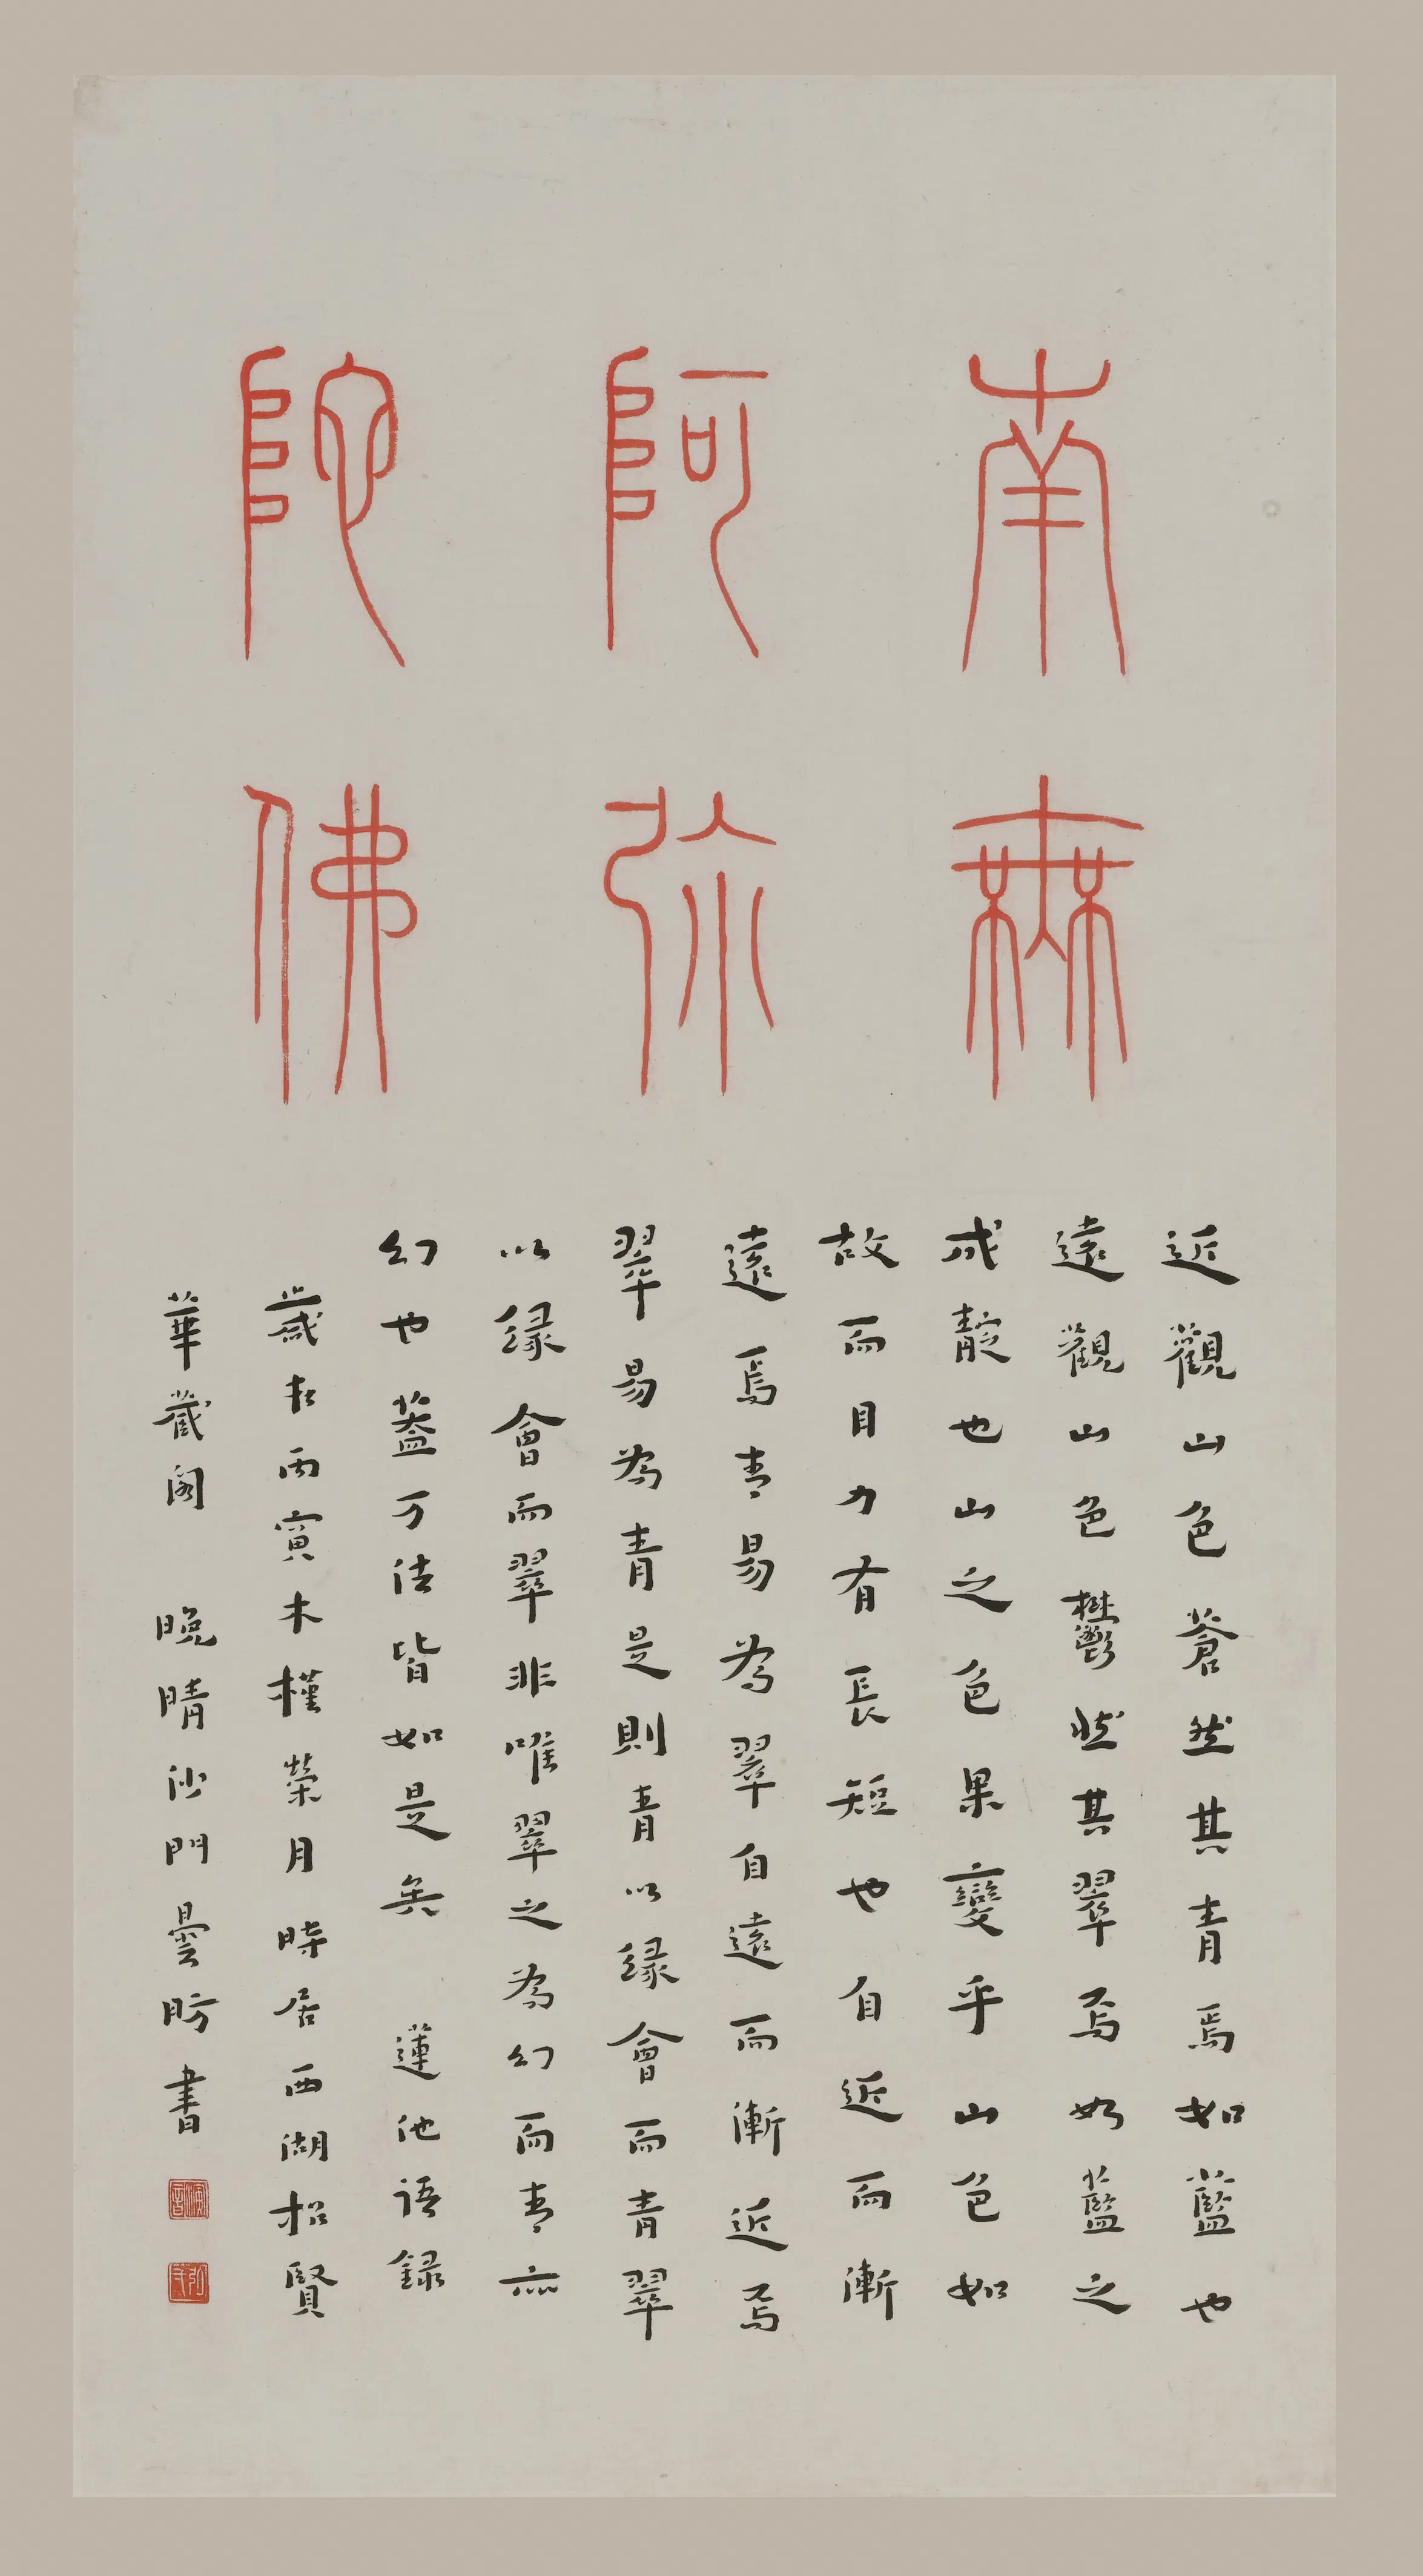 南無
阿弥
陀佛
近觀山色蒼然其青焉如藍也
遠觀山色鬱然其翠焉如藍之
成靛也山之色果變乎山色如
故而目力有長短也自近而漸
遠焉青易為翠自遠而漸近焉
翠易為青是則青以緣會而青翠
以緣會而翠非唯翠之為幻而青亦
幻也蓋万法皆如是矣 蓮池語錄
歲在丙寅木槿榮月時居西湖招賢
華藏閣 晚晴沙門曇昉書
演音
弘一